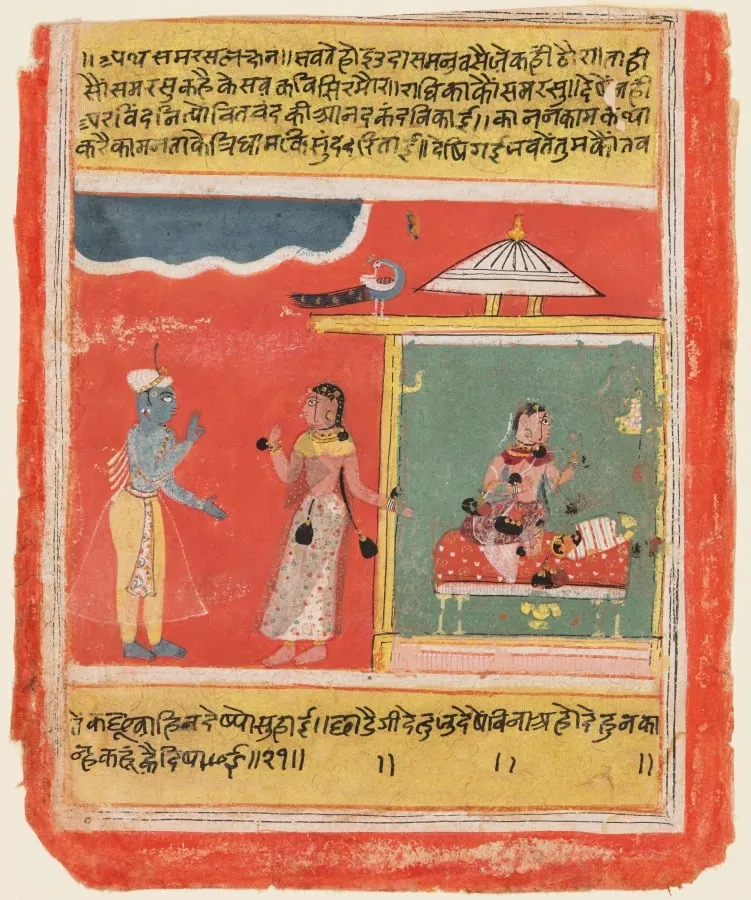 ॥अथ समरस लछन॥ सवते होइ उदास मनु वसै जे कही ठौर॥ ताही
सौ समरसु कहै केसव कवि सिरमौर॥ राधिका कौ समरसु॥ देषे नही
अरविंद नि त्यो चित चंद की आनद कंद निकाई॥ कानन काम कथा
करै काम न ताके त्रिधाम कि सुंदरताई॥ देषि गई जवते तुमकौ तव
ते कछू वाहि न देष्यो सुहाई॥ छाडैगी देह जु देषे विना अहो देहु न का
न्ह कहूं कै दिषाई॥२१॥ ॥ ॥ ॥